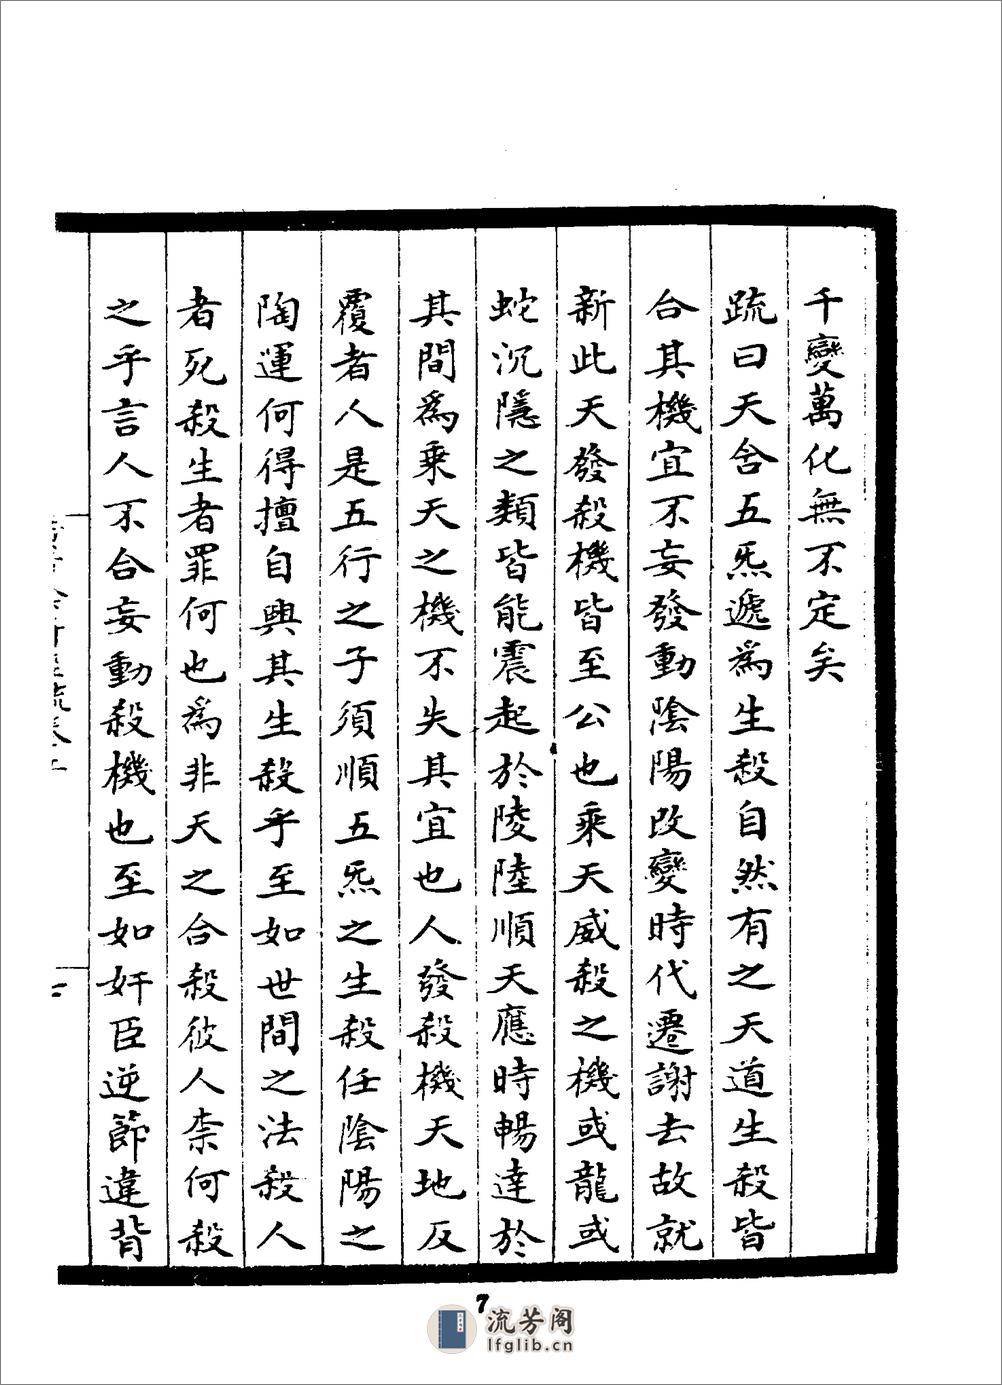 千變萬化無不定矣
疏曰天含五炁遞為生殺自然有之天道生殺皆
合其機宜不妄發動陰陽改變時代遷謝去故就
新此天發殺機皆至公也乘天威殺之機或龍或
蛇沉隱之類皆能震起於陵陸順天應時暢達於
其間為乘天之機不失其宜也人發殺機天地反
覆者人是五行之子須順五炁之生殺任陰陽之
陶運何得擅自興其生殺乎至如世間之法殺人
者死殺生者罪何也為非天之合殺彼人柰何殺
之乎言人不合妄動殺機也至如奸臣逆節違背
7
流芳阁
lfglib.cn